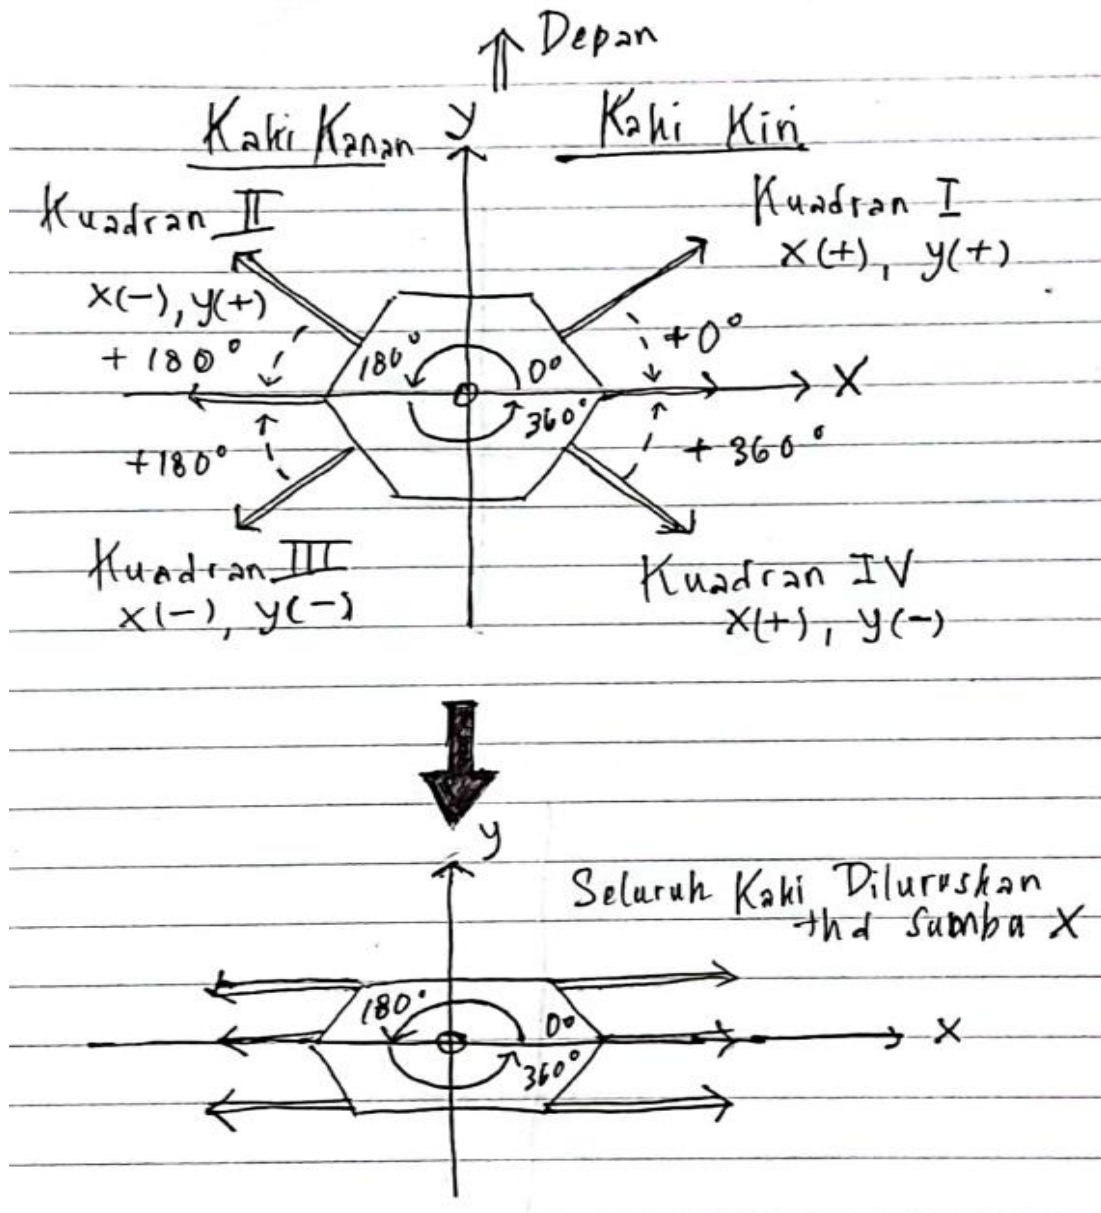 Depan
Kaki Kanan
y
Kaki Kiri
Kuadran II
Kuadran I
x(+), y(+)
x(-), y(+)
+ 180°
180°
0°
+0°
X
360°
+180°
+ 360°
Kuadran III
x(-), y(-)
Kuadran IV
x(+), y(-)
y
Seluruh Kaki Diluruskan
thd Sumba X
180°
0°
X
360°